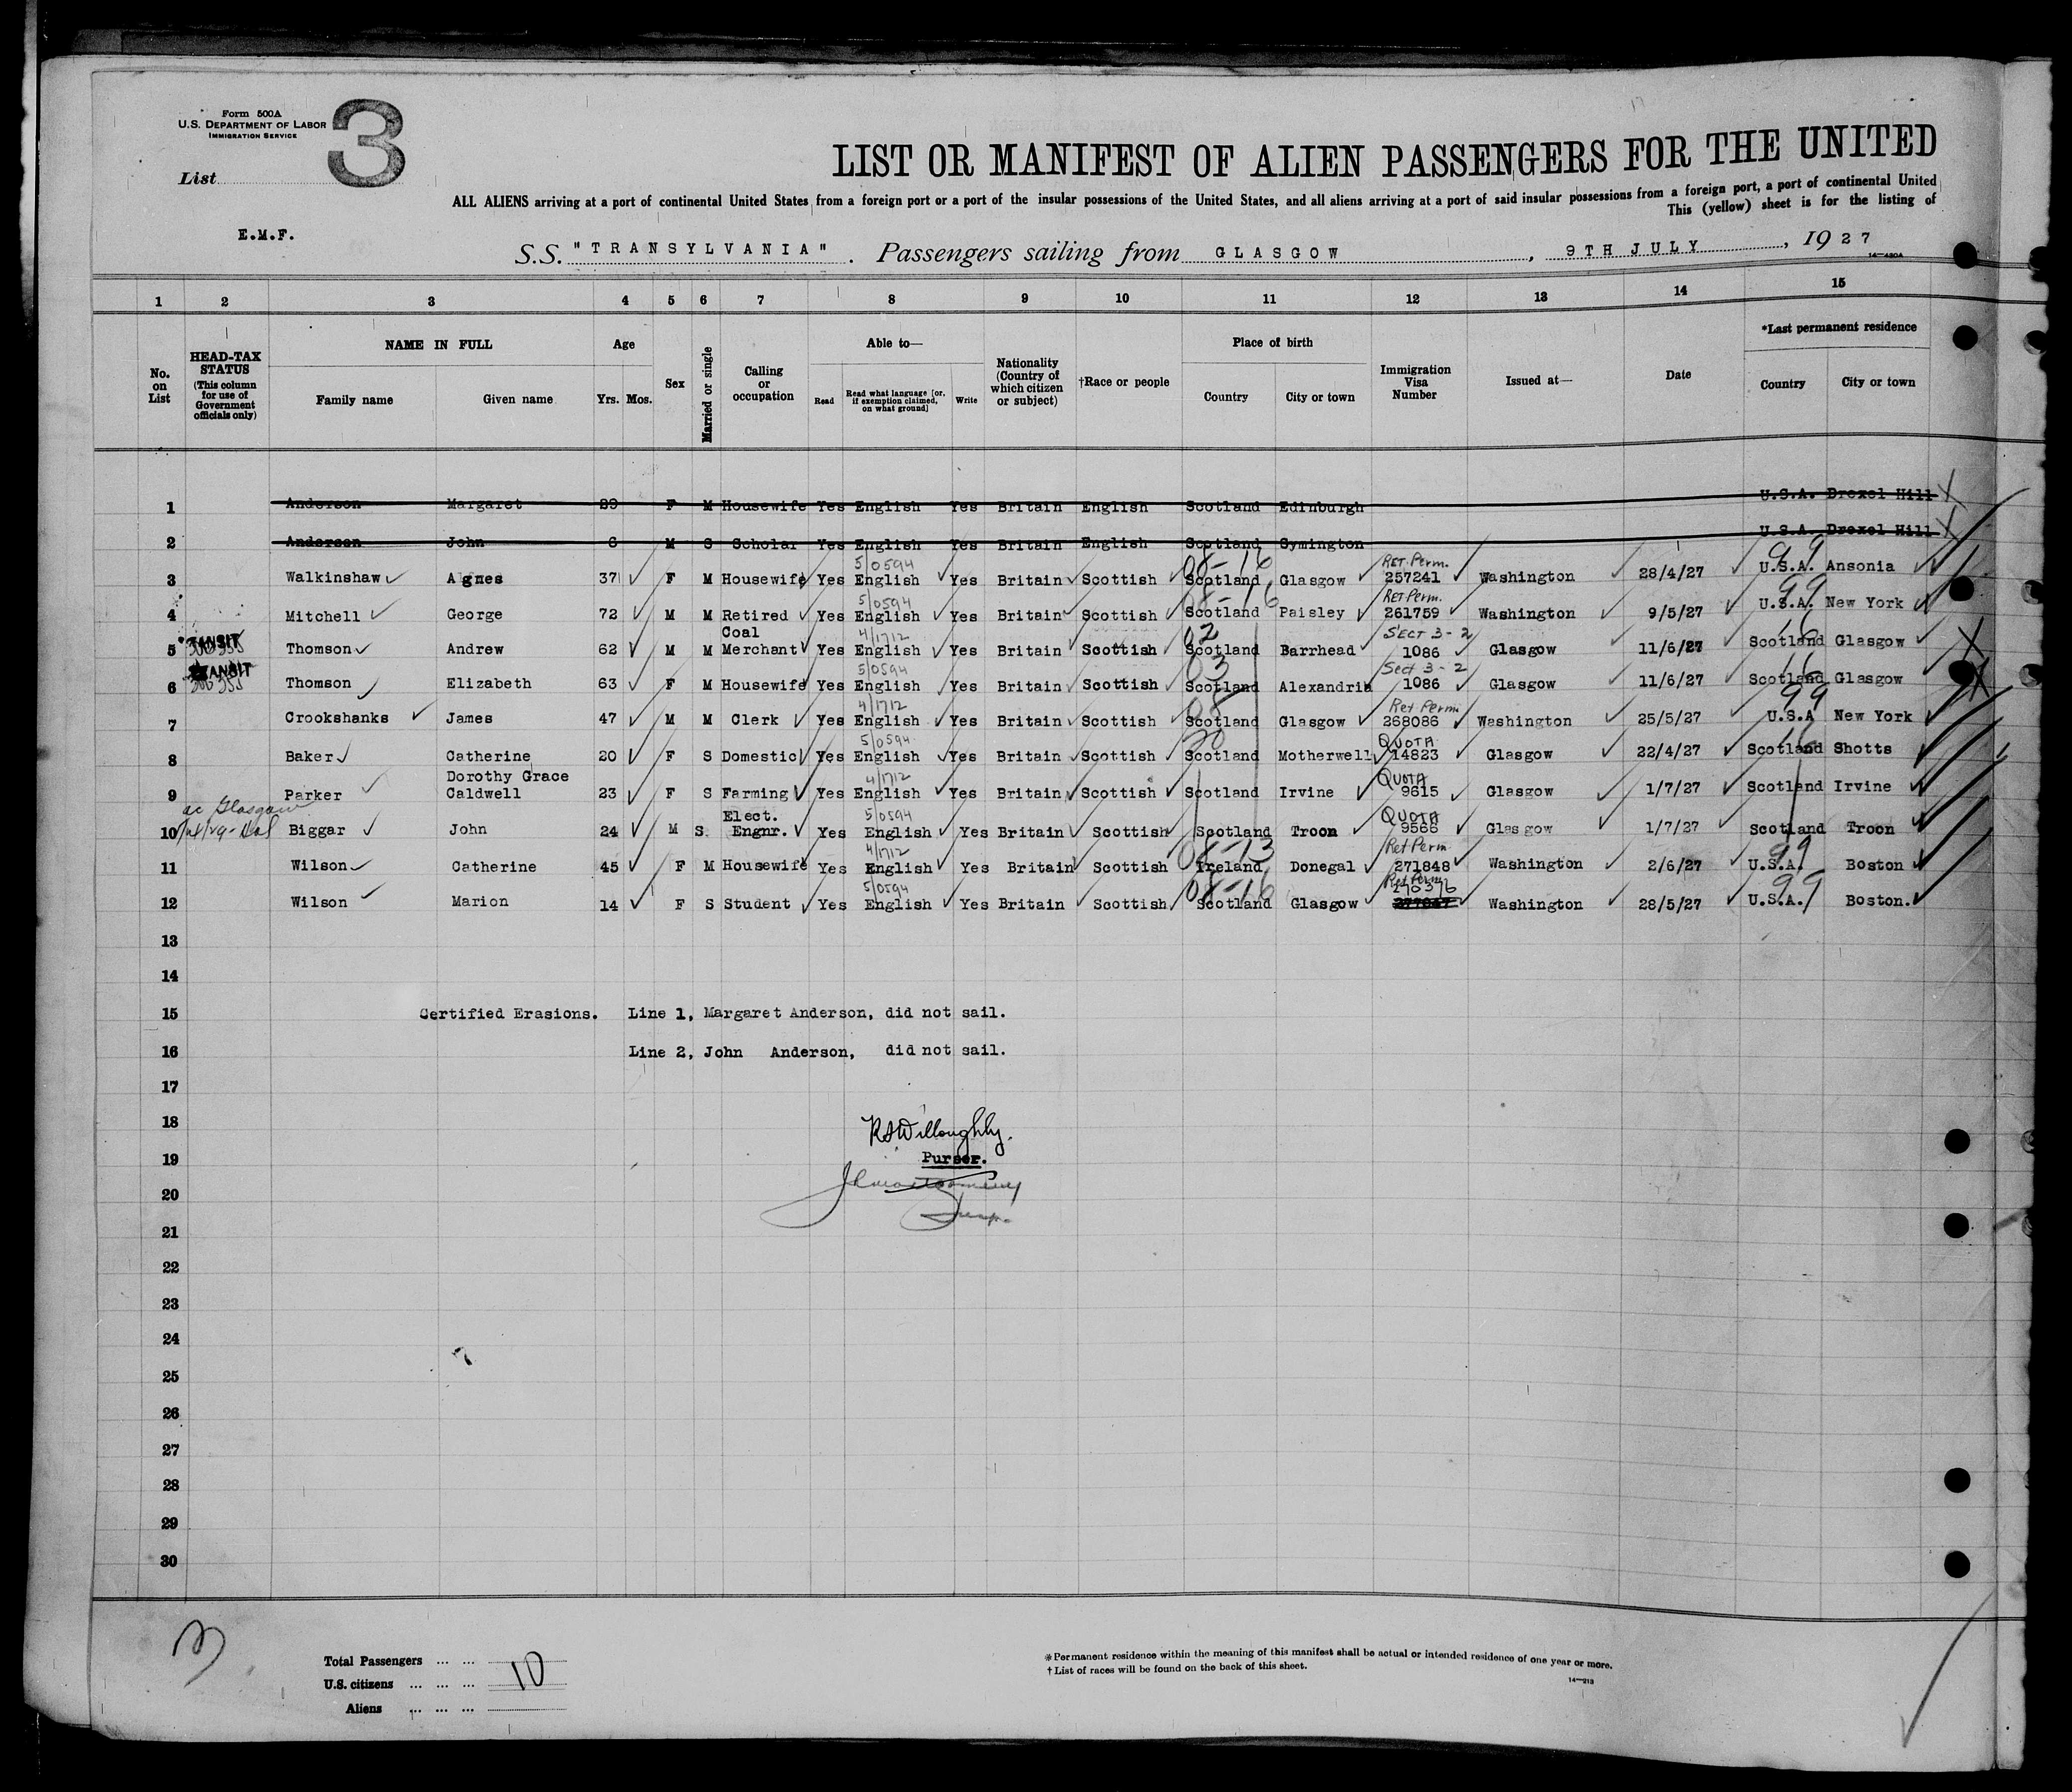 Form 500A
U.S. DEPARTMENT OF LABOR
IMMIGRATION SERVICE
3
List
LIST OR MANIFEST OF ALIEN PASSENGERS FOR THE UNITED
ALL ALIENS arriving at a port of continental United States from a foreign port or a port of the insular possessions of the United States, and all aliens arriving at a port of said insular possessions from a foreign port, a port of continental United
This (yellow) sheet is for the listing of
E.M.F.
S.S. "TRANSYLVANIA". Passengers sailing from GLASGOW, 9TH JULY, 1927
14—430A
1 2 3 4 5 6 7 8 9 10 11 12 13 14 15
No. on List
HEAD-TAX STATUS (This column for use of Government officials only)
NAME IN FULL Family name Given name
Age Yrs. Mos.
Sex
Married or single
Calling or occupation
Able to— Read Read what language [or, if exemption claimed, on what ground] Write
Nationality (Country of which citizen or subject)
†Race or people
Place of birth Country City or town
Immigration Visa Number
Issued at—
Date
*Last permanent residence Country City or town
1 Anderson Margaret 29 F M Housewife Yes English Yes Britain English Scotland Edinburgh U.S.A. Drexel Hill
2 Anderson John 6 M S Scholar Yes English Yes Britain English Scotland Symington U.S.A. Drexel Hill
5/0594 08-16 RET Perm. 99
3 Walkinshaw Agnes 37 F M Housewife Yes English Yes Britain Scottish Scotland Glasgow 257241 Washington 28/4/27 U.S.A. Ansonia
5/0594 08-16 Ret Perm. 99
4 Mitchell George 72 M M Retired Yes English Yes Britain Scottish Scotland Paisley 261759 Washington 9/5/27 U.S.A. New York
TANSIT 4/1712 02 SECT 3-2 16
5 Thomson Andrew 62 M M Coal Merchant Yes English Yes Britain Scottish Scotland Barrhead 1086 Glasgow 11/6/27 Scotland Glasgow
TANSIT 5/0594 03 Sect 3-2 16
6 Thomson Elizabeth 63 F M Housewife Yes English Yes Britain Scottish Scotland Alexandria 1086 Glasgow 11/6/27 Scotland Glasgow
4/1712 08 Ret Perm 99
7 Crookshanks James 47 M M Clerk Yes English Yes Britain Scottish Scotland Glasgow 268086 Washington 25/5/27 U.S.A New York
5/0594 QUOTA 16
8 Baker Catherine 20 F S Domestic Yes English Yes Britain Scottish Scotland Motherwell 14823 Glasgow 22/4/27 Scotland Shotts
4/1712 QUOTA
9 Parker Dorothy Grace Caldwell 23 F S Farming Yes English Yes Britain Scottish Scotland Irvine 9615 Glasgow 1/7/27 Scotland Irvine
Glasgow 5/0594 QUOTA
10 Biggar John 24 M S. Elect. Engnr. Yes English Yes Britain Scottish Scotland Troon 9566 Glasgow 1/7/27 Scotland Troon
4/1712 08-13 Ret Perm 99
11 Wilson Catherine 45 F M Housewife Yes English Yes Britain Scottish Ireland Donegal 271848 Washington 2/6/27 U.S.A. Boston
5/0594 08-16 Ret Perm 99
12 Wilson Marion 14 F S Student Yes English Yes Britain Scottish Scotland Glasgow Washington 28/5/27 U.S.A. Boston.
13
14
15 Certified Erasions. Line 1, Margaret Anderson, did not sail.
16 Line 2, John Anderson, did not sail.
17
18 Willoughby.
19 Purser.
20
21
22
23
24
25
26
27
28
29
30
3
Total Passengers ... ...
U.S. citizens ... ... ... 10
Aliens ... ... ...
*Permanent residence within the meaning of this manifest shall be actual or intended residence of one year or more.
†List of races will be found on the back of this sheet.
14—213